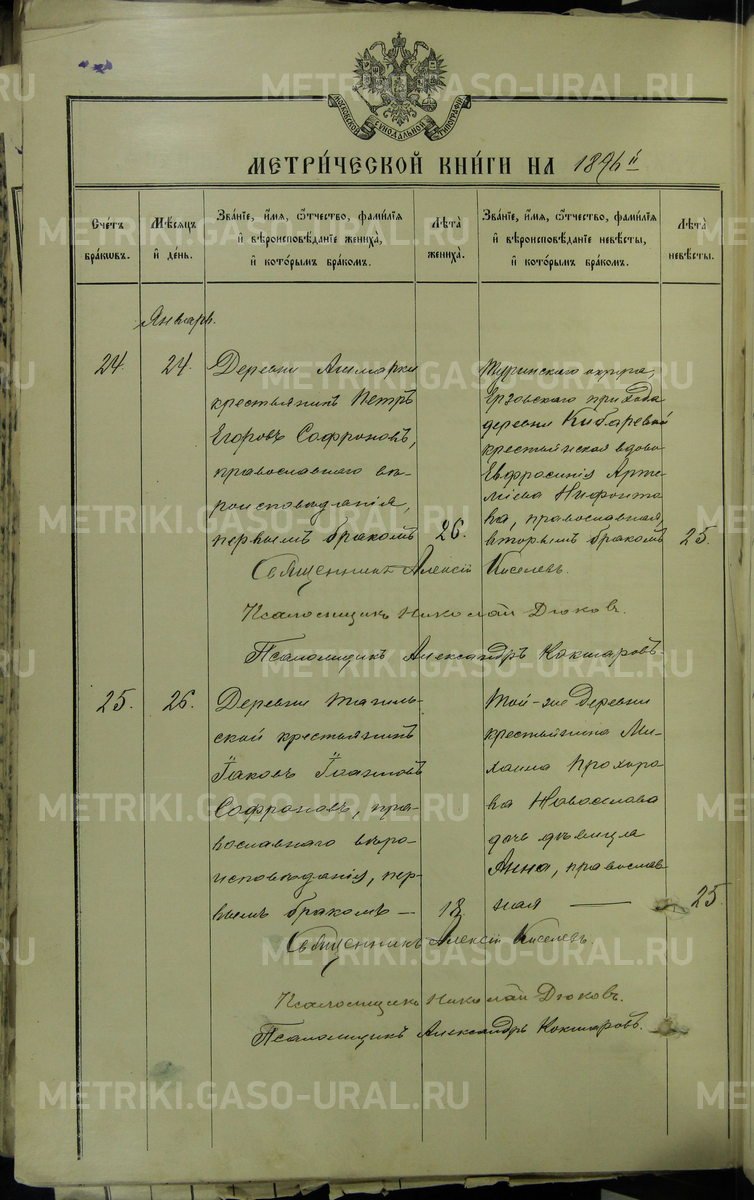 МОСКОВСКОЙ СѴНОДАЛЬНОЙ ТИПОГРАФІИ
МЕТРИ́ЧЕСКОЙ КНИ́ГИ НА 1896й
Сче́тъ бра́кωвъ.
Мѣ́сяцъ и҆ де́нь.
Зва́нїе, и҆́мя, ѻ҆́тчество, фами́лїя и҆ вѣроисповѣ́данїе жениха̀, и҆ кото́рымъ бра́комъ.
Лѣ́та жениха̀.
Зва́нїе, и҆́мя, ѻ҆́тчество, фами́лїя и҆ вѣроисповѣ́данїе невѣ́сты, и҆ кото́рымъ бра́комъ.
Лѣ́та невѣ́сты.
Январь.
24. 24.
Деревни
крестьянинъ Петръ
Егоровъ Софроновъ,
православнаго вѣ-
роисповѣданія,
первымъ бракомъ 26.
Туринскаго округа,
прихода
деревни Кибаревой
крестьянская вдова
Евфросинія Арте-
міева Нифонто-
ва, православная,
вторымъ бракомъ 25.
Священникъ Алексій Киселевъ.
Псаломщикъ Николай Дюковъ.
Псаломщикъ Александръ Кокшаровъ.
25. 26.
Деревни Тагиль-
ской крестьянинъ
Іаковъ Іоанновъ
Софроновъ, пра-
вославнаго вѣро-
исповѣданія, пер-
вымъ бракомъ — 18
Той-же деревни
крестьянина Ми-
хаила Прохоро-
ва Новоселова
дочь дѣвица
Анна, православ-
ная — 25.
Священникъ Алексій Киселевъ.
Псаломщикъ Николай Дюковъ.
Псаломщикъ Александръ Кокшаровъ.
METRIKI.GASO-URAL.RU